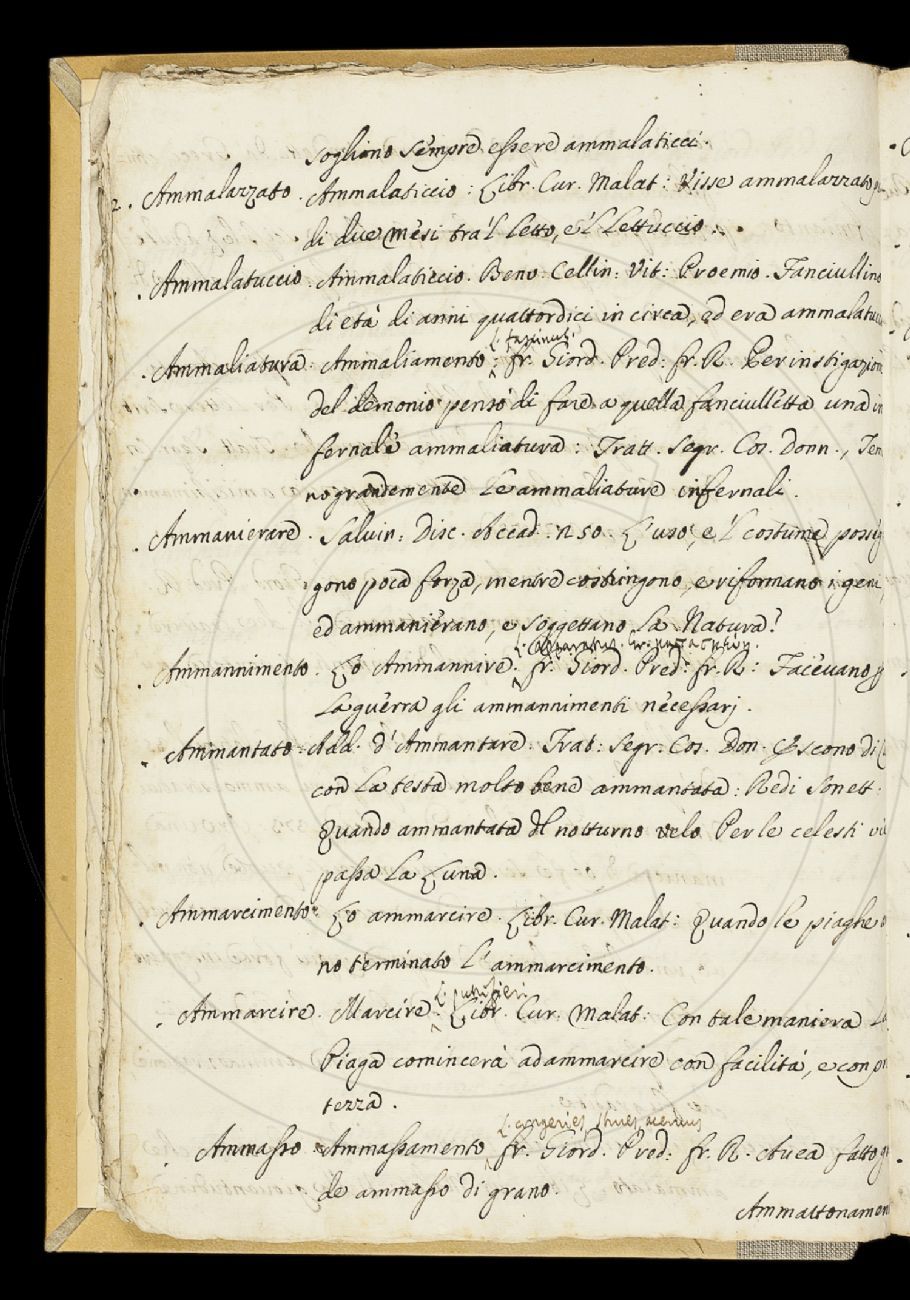 sogliono sempre essere ammalaticci.
2. Ammalazzato. Ammalaticcio: Libr. Cur. Malat: Visse ammalazzato
di due mesi tra'l Letto, e'l Lettuccio.
. Ammalatuccio. Ammalaticcio. Benv. Cellin: Vit: Proemio. Fanciullino
di età di anni quattordici in circa, ed era ammalatuc
L. fascinatio
. Ammaliatura. Ammaliamento: fr. Giord. Pred: fr. R. Per instigazione
del demonio pensò di fare a quella fanciulletta una in
fernale ammaliatura: Tratt. Segr. Cos. Donn., Tem
no grandemente le ammaliature infernali.
. Ammanierare. Salvin: Disc. Accad. n 50. L'uso, e'l costume porrig
gono poca forza, mentre costringono, e riformano i geni,
ed ammanierano, e soggettano la Natura?
L. apparatus
. Ammannimento. Lo Ammannire. fr. Giord. Pred: fr. R: Facevano p
la guerra gli ammannimenti necessarj.
. Ammantato. Add. d'Ammantare. Trat: Segr. Cos. Don. Escono di
con la testa molto bene ammantata: Redi Sonett.
Quando ammantata del notturno velo Per le celesti vie
passa la Luna.
. Ammarcimento. Lo ammarcire. Libr. Cur. Malat: Quando le piaghe
no terminato l'ammarcimento.
L. putrefieri
. Ammarcire. Marcire. Libr. Cur. Malat: Con tale maniera La
Piaga comincerà ad ammarcire con facilità, e con pr
tezza.
L. congeries strues acervus
. Ammasso Ammassamento fr. Giord. Pred: fr. R. Avea fatto gr
de ammasso di grano.
Ammattonamen